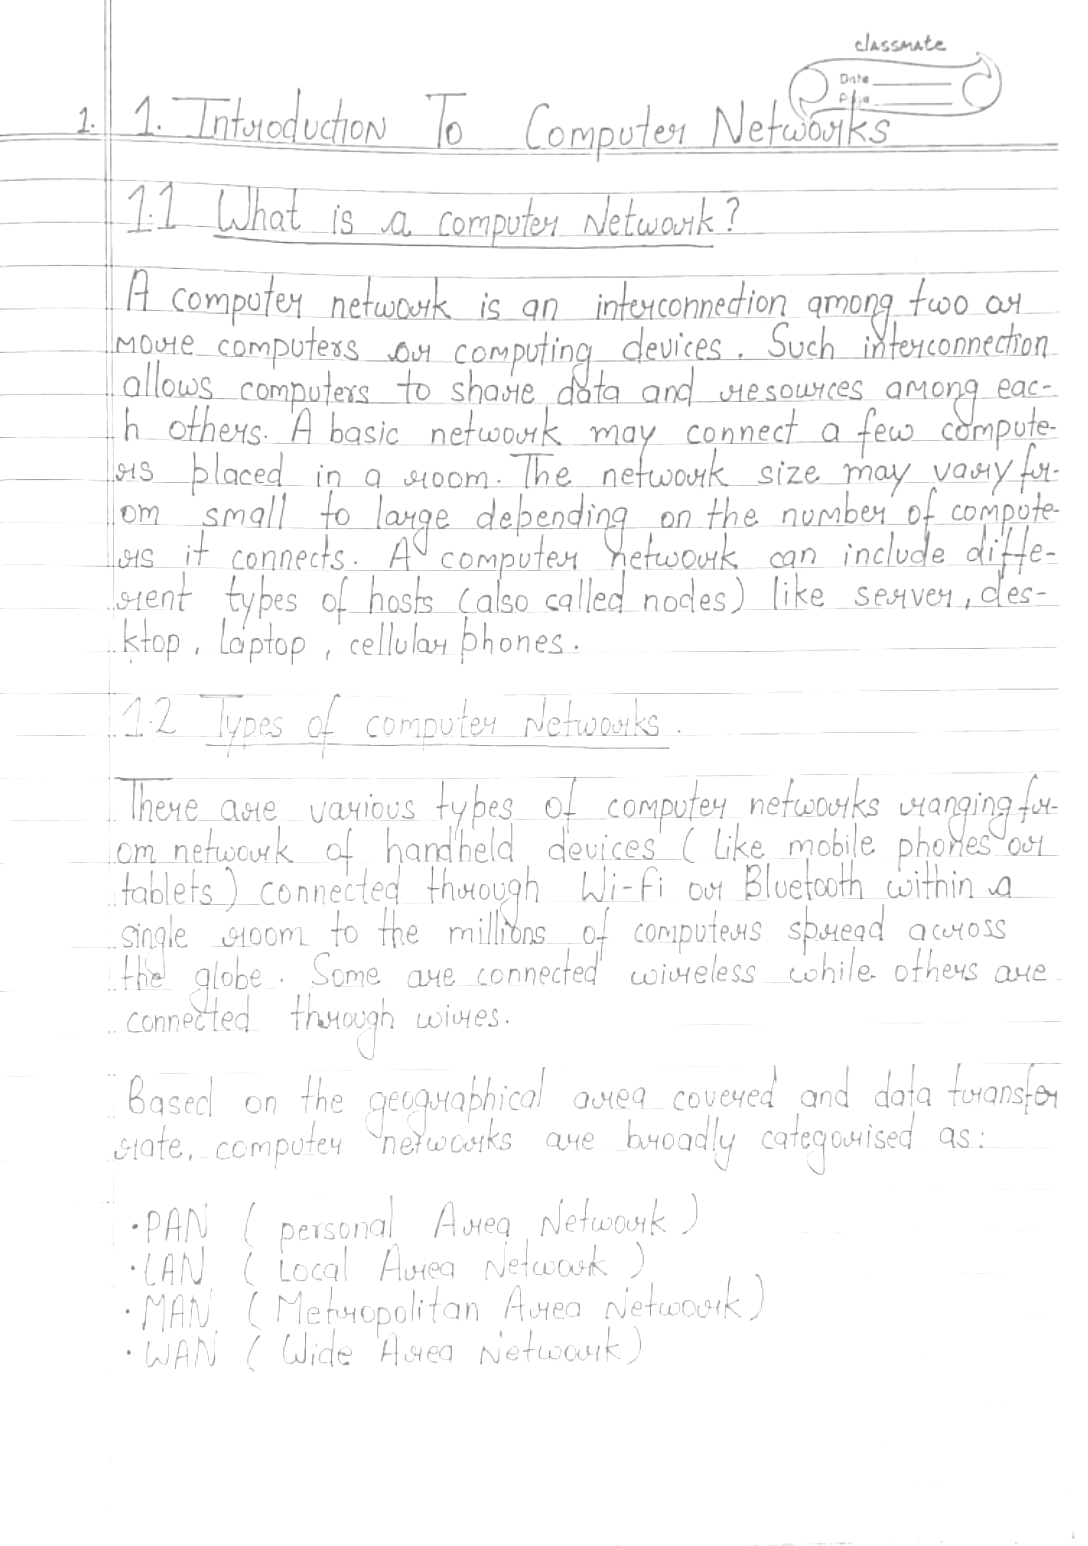 classmate
Date
Page
1. 1. Introduction To Computer Networks
1.1 What is a computer Network?
A computer network is an interconnection among two or
more computers or computing devices. Such interconnection
allows computers to share data and resources among eac-
h others. A basic network may connect a few compute-
rs placed in a room. The network size may vary fr-
om small to large depending on the number of compute-
rs it connects. A computer network can include diffe-
rent types of hosts (also called nodes) like server, des-
ktop, laptop, cellular phones.
1.2 Types of computer Networks.
There are various types of computer networks ranging fr-
om network of handheld devices (like mobile phones or
tablets) connected through Wi-Fi or Bluetooth within a
single room to the millions of computers spread across
the globe. Some are connected wireless while others are
connected through wires.
Based on the geographical area covered and data transfer
rate, computer networks are broadly categorised as:
• PAN ( personal Area Network )
• LAN ( Local Area Network )
• MAN ( Metropolitan Area Network )
• WAN ( Wide Area Network )